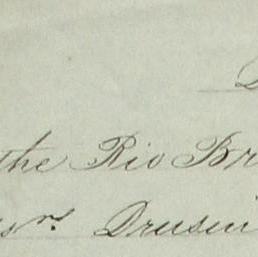 the Rio Br
srs Drusin